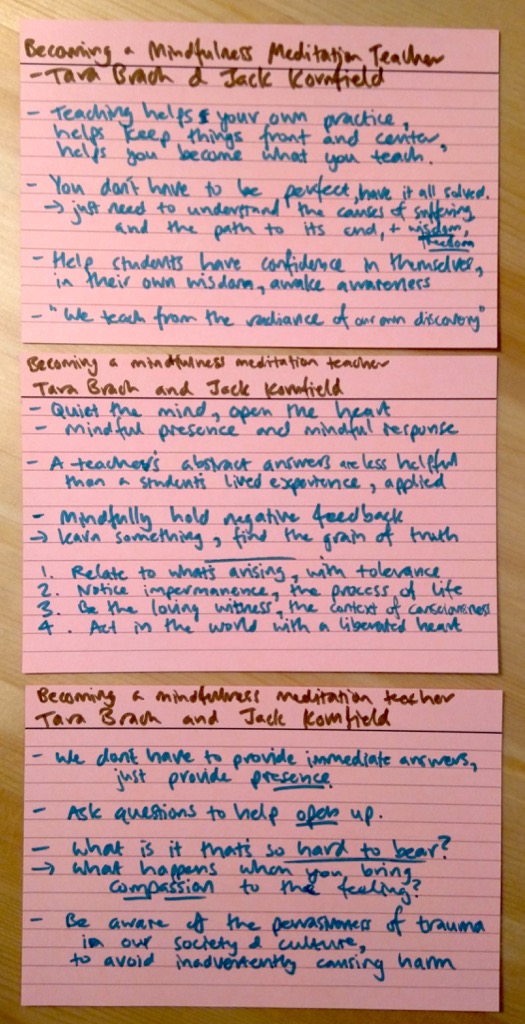 Becoming a Mindfulness Meditation Teacher
- Tara Brach & Jack Kornfield
- Teaching helps your own practice,
helps keep things front and center,
helps you become what you teach.
- You don't have to be perfect, have it all solved.
→ just need to understand the causes of suffering
and the path to its end, + wisdom,
freedom
- Help students have confidence in themselves,
in their own wisdom, awake awareness
- "We teach from the radiance of our own discovery"
Becoming a mindfulness meditation teacher
Tara Brach and Jack Kornfield
- Quiet the mind, open the heart
- mindful presence and mindful response
- A teacher's abstract answers are less helpful
than a students lived experience, applied
- Mindfully hold negative feedback
→ learn something, find the grain of truth
1. Relate to what's arising, with tolerance
2. Notice impermanence, the process of life
3. Be the loving witness, the context of consciousness
4. Act in the world with a liberated heart
Becoming a mindfulness meditation teacher
Tara Brach and Jack Kornfield
- We don't have to provide immediate answers,
just provide presence.
- Ask questions to help open up.
- What is it that's so hard to bear?
→ What happens when you bring
compassion to the feeling?
- Be aware of the pervasiveness of trauma
in our society & culture,
to avoid inadvertently causing harm